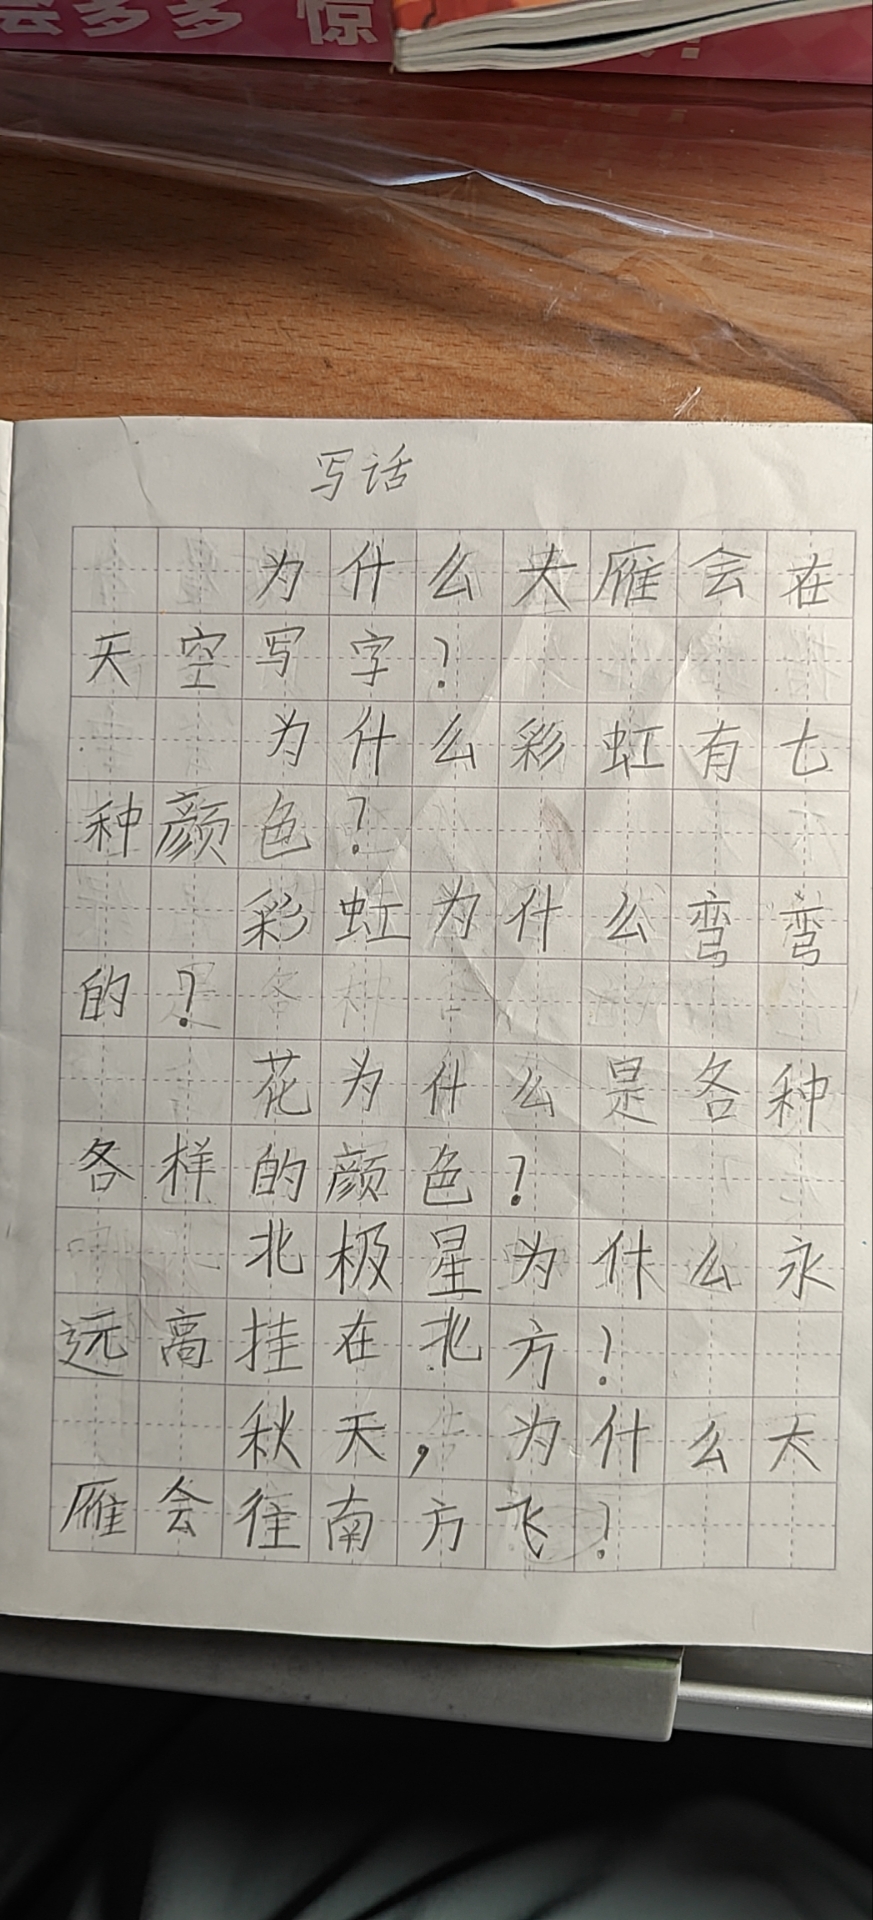 会多多 惊
写话
为什么大雁会在
天空写字？
为什么彩虹有七
种颜色？
彩虹为什么弯弯
的？
花为什么是各种
各样的颜色？
北极星为什么永
远高挂在北方！
秋天，为什么大
雁会往南方飞！